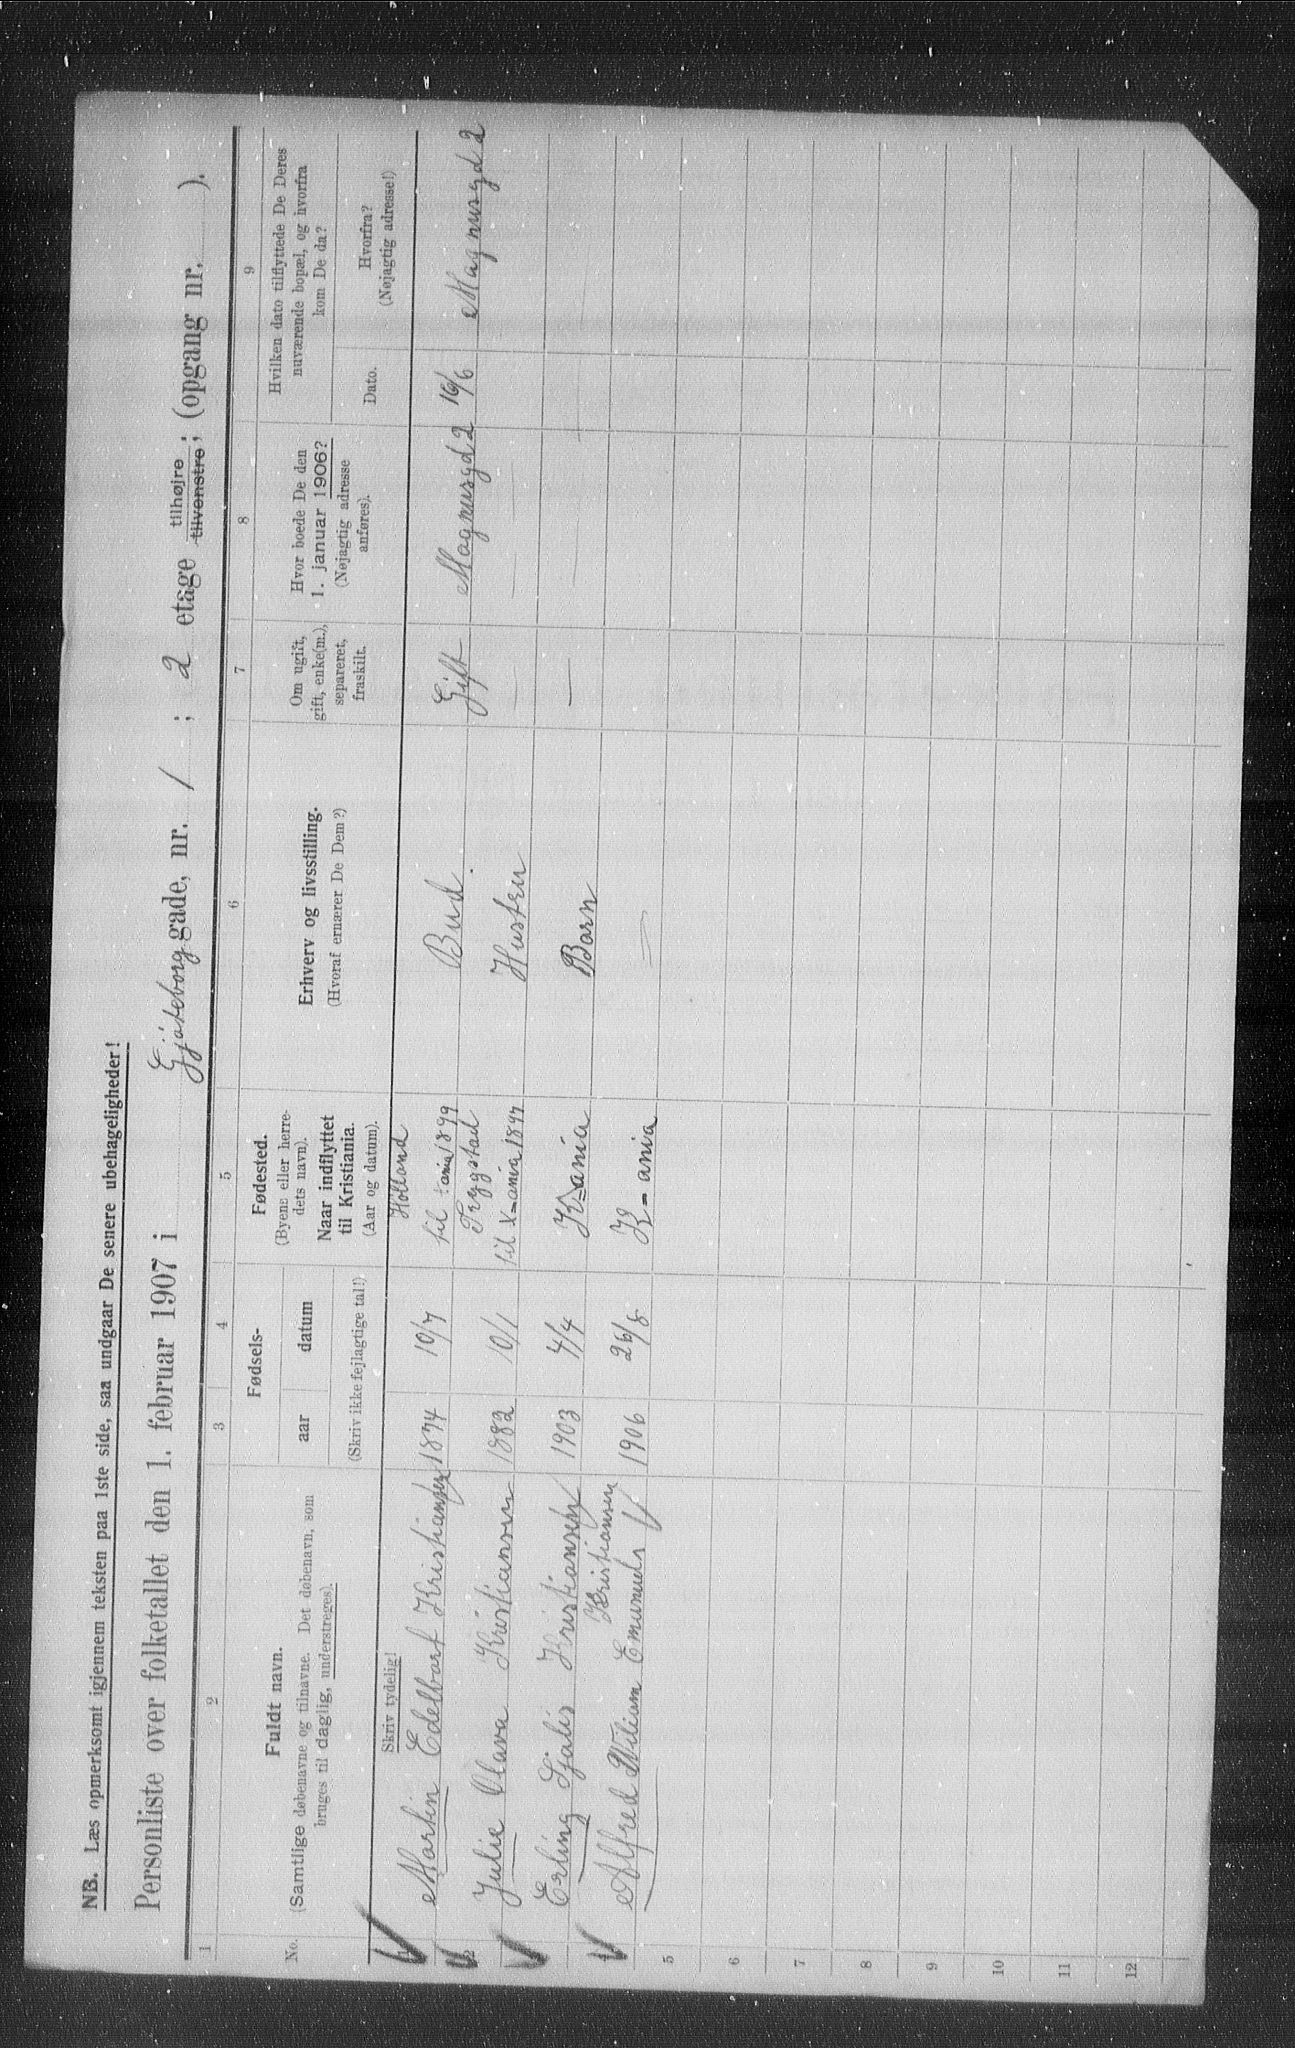 NB. Læs opmerksomt igjennem teksten paa 1ste side, saa undgaar De senere ubehageligheder!
Personliste over folketallet den 1. februar 1907 i Gjøteborg gade, nr. 1 ; 2 etage tilhøjre tilvenstre; (opgang nr. ).
1 2 3 4 5 6 7 8 9
No.
Fuldt navn.
(Samtlige døbenavne og tilnavne. Det døbenavn, som
bruges til daglig, understreges).
Fødsels-
aar datum
(Skriv ikke fejlagtige tal!)
Fødested.
(Byens eller herre-
dets navn).
Naar indflyttet
til Kristiania.
(Aar og datum).
Erhverv og livsstilling.
(Hvoraf ernærer De Dem?)
Om ugift,
gift, enke(m.),
separeret,
fraskilt.
Hvor boede De den
1. januar 1906?
(Nøjagtig adresse
anføres).
Hvilken dato tilflyttede De Deres
nuværende bopæl, og hvorfra
kom De da?
Dato.
Hvorfra?
(Nøjagtig adresse!)
Skriv tydelig!
Holland
1 Martin Edelbart Kristiansen 1874 10/7 til ania 1899 Bud. Gift Magnusgd 2 16/6 Magnusgd 2
Trygstad
2 Julie Olava Kristiansen 1882 10/1 til K-ania 1897 Hustru
Erling Kristiansen 1903 4/4 K-ania Barn —
Kristiansen
Alfred Wiliam Emanuel 1906 26/8 K-ania
5
6
7
8
9
10
11
12